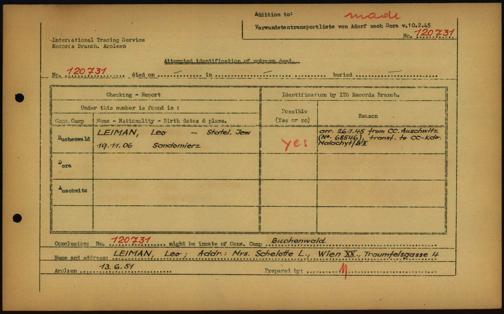 Addition to:
made
Verwundetentransportliste von Adorf nach Dora v.10.2.45
No. 120731
International Tracing Service
Records Branch, Arolsen
Attempted identification of unknown dead.
No. 120731 died on in buried
Checking - Report
Identification by ITS Records Branch.
Under this number is found in :
Possible
(Yes or no)
Reason
Conc. Camp
Name - Nationality - Birth dates & place.
Buchenwald
LEIMAN, Leo - Statel. Jew
19.11.06 Sandomierz
yes
arr. 26.1.45 from CC. Auschwitz
transf. to CC-Kdo.
Dora
Auschwitz
Conclusion: No. 120731 might be inmate of Conc. Camp Buchenwald
Name and address: LEIMAN, Leo; Addr.: Mrs. L., Wien XX., Traunfelsgasse 4
Arolsen 13.6.51 Prepared by: